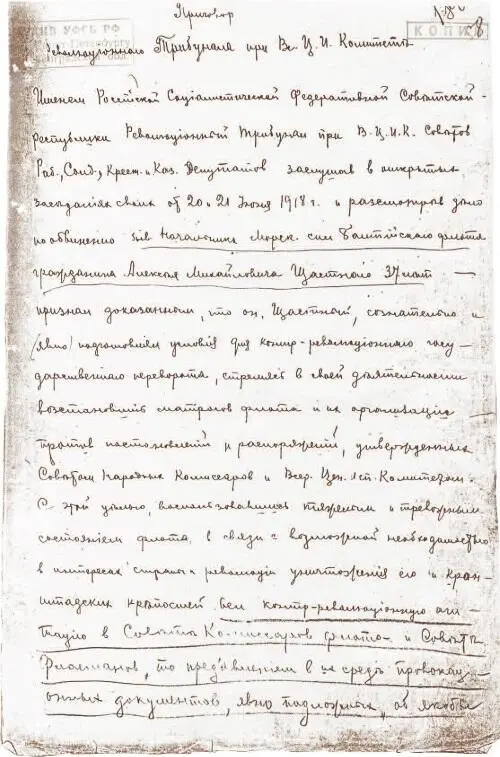 Приговор
Революцiоннаго Трибунала при Вс. Ц. И. Комитетѣ
КОПИЯ
АРХИВ УФСБ РФ
Именем Россiйской Соцiалистической Федеративной Совѣтской
Республики Революцiонный Трибунал при В.Ц.И.К. Совѣтов
Раб., Солд., Крест. и Каз. Депутатов заслушав в открытых
засѣданiях своих от 20 и 21 Iюня 1918 г. и разсмотрѣв дѣло
по обвиненiю быв. Начальника Морск. сил Балтiйскаго флота
гражданина Алексѣя Михайловича Щастнаго 37 лѣт —
признал доказанным, что он, Щастный, сознательно и
явно подготовлял условiя для контр-революцiоннаго госу-
дарственнаго переворота, стремясь в своей дѣятельности
возстановить матросов флота и их организацiи
против постановленiй и распоряженiй, утвержденных
Совѣтом Народных Комиссаров и Всер. Цен. Исп. Комитетом.
С этой цѣлью, воспользовавшись тяжелым и тревожным
состоянiем флота, в связи с возможной необходимостью
в интересах страны и революцiи уничтоженiя его и Крон-
штадских крѣпостей вел контр-революцiонную аги-
тацiю в Совѣтѣ Комиссаров флота и Совѣтѣ
Флагманов, то предъявленiем в их средѣ провокац-
iонных документов, явно подложных, об якобы